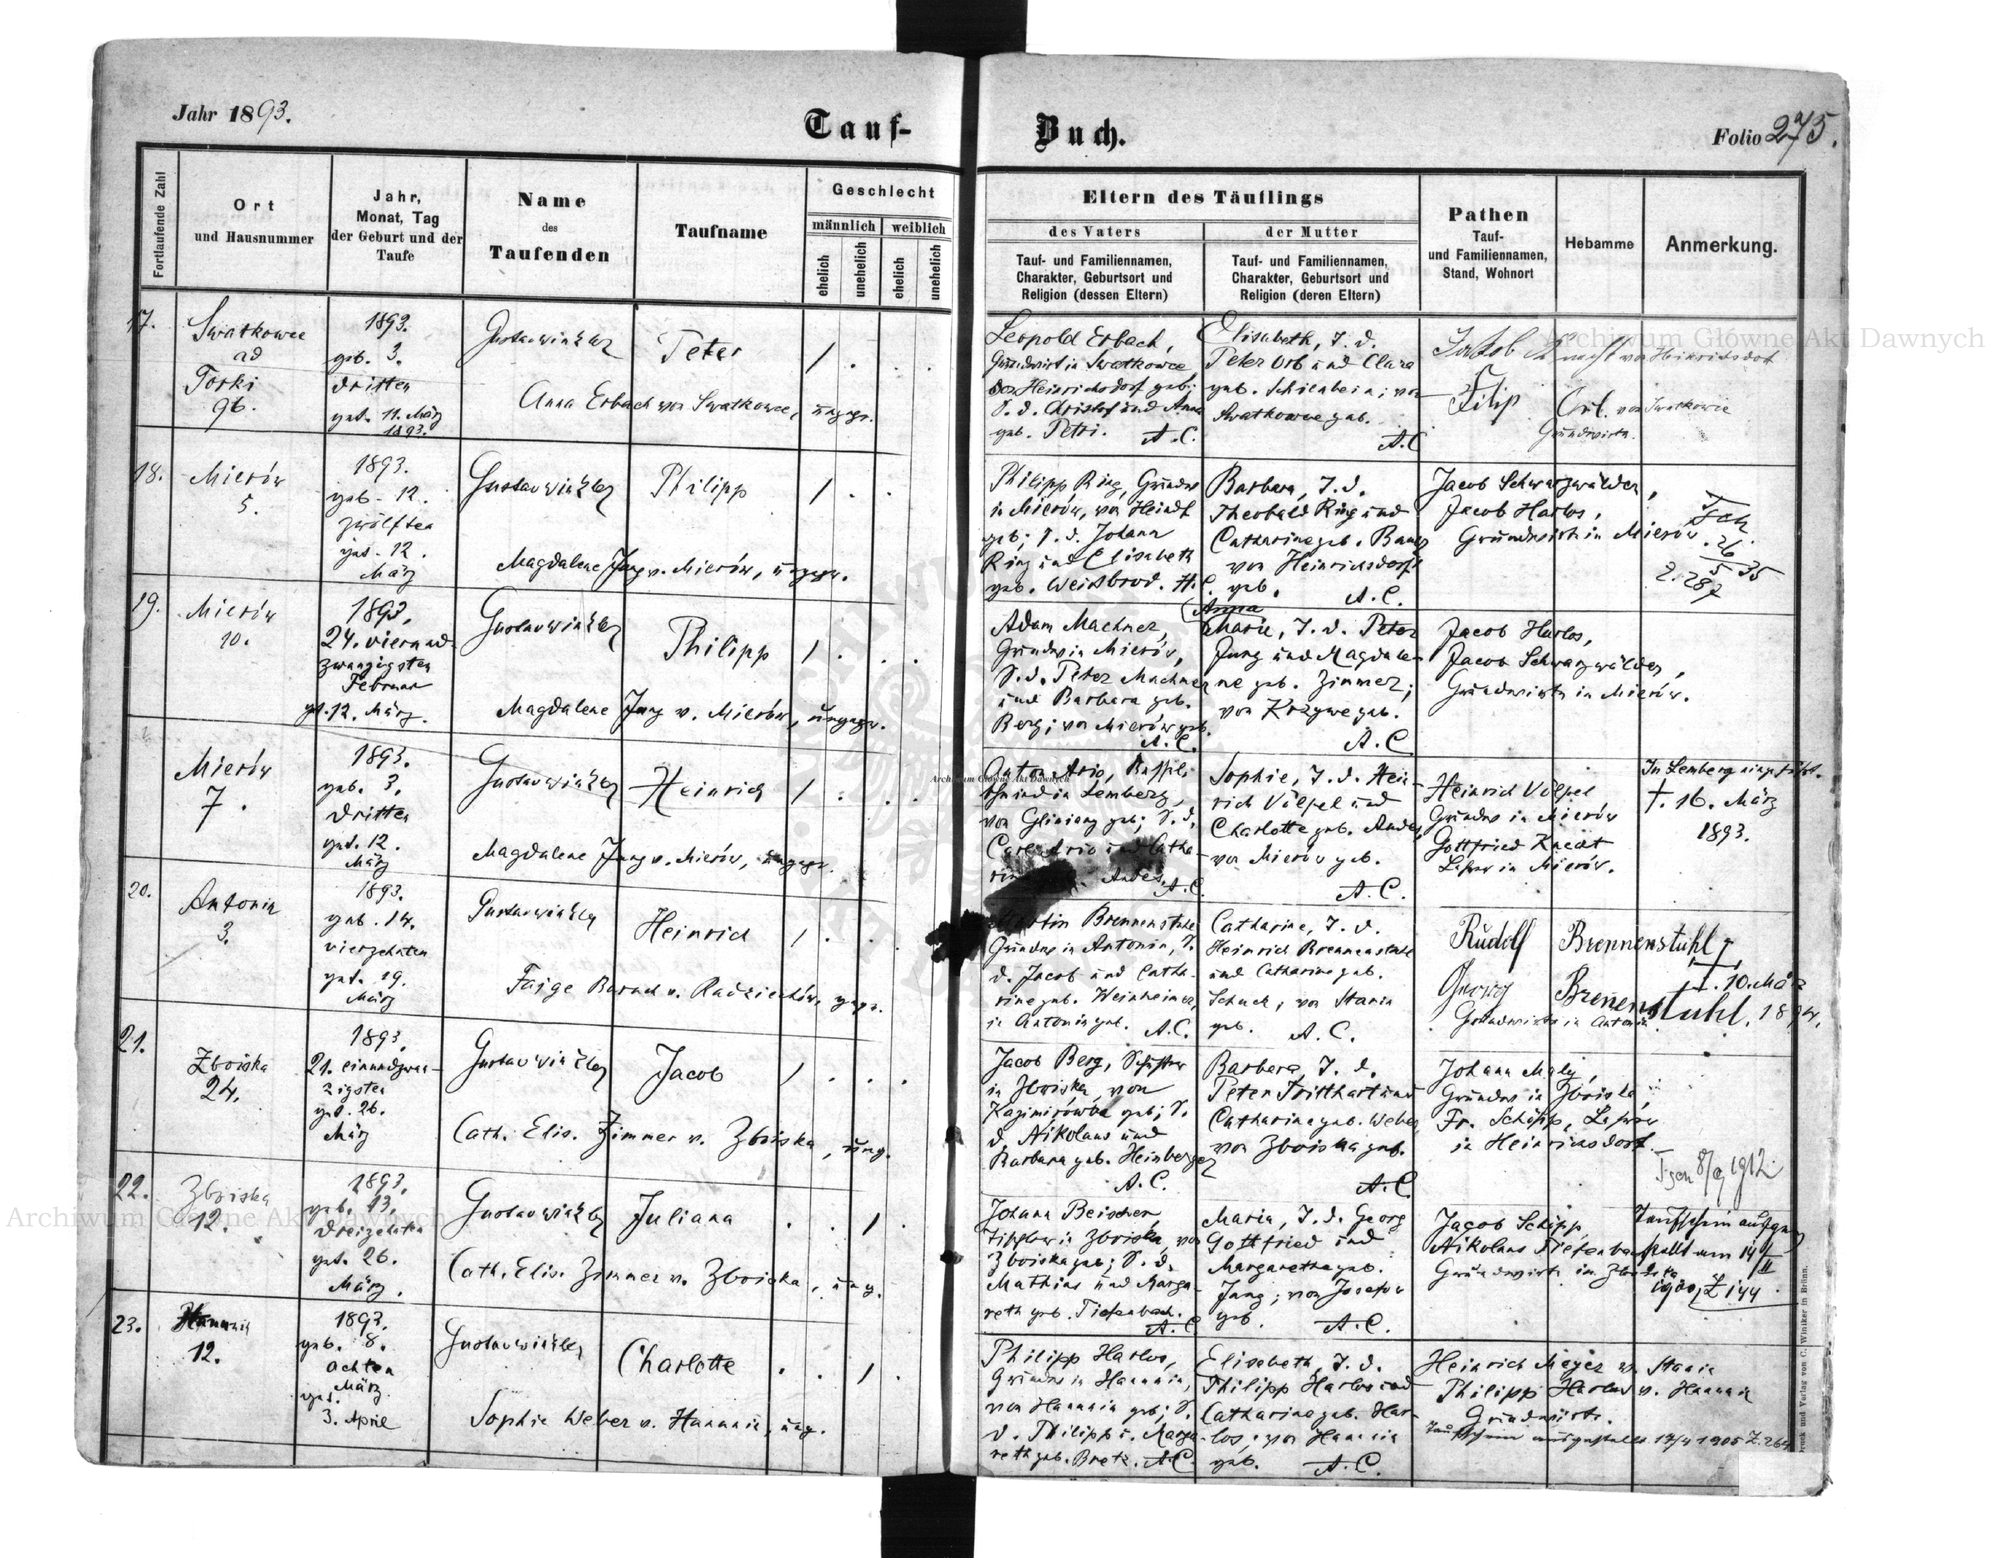 Jahr 1893.
Tauf-Buch.
Folio 275.
Fortlaufende Zahl
Ort
und Hausnummer
Jahr,
Monat, Tag
der Geburt und der
Taufe
Name
des
Taufenden
Taufname
Geschlecht
männlich
weiblich
ehelich
unehelich
ehelich
unehelich
Eltern des Täuflings
des Vaters
Tauf- und Familiennamen,
Charakter, Geburtsort und
Religion (dessen Eltern)
der Mutter
Tauf- und Familiennamen,
Charakter, Geburtsort und
Religion (deren Eltern)
Pathen
Tauf-
und Familiennamen,
Stand, Wohnort
Hebamme
Anmerkung.
17.
Swatkowce
ad
Torki
96.
1893.
geb. 3.
dritten
get. 11. März
1893.
Gustav Winkler
Peter
1 . . .
Anna Erbach von Swatkowce, ungepr.
Leopold Erbach,
Grundwirt in Swatkowce,
von Heinrichsdorf geb;
S. d. Christof und Anna
geb. Petri. A.C.
Elisabeth, T. d.
Peter Orb und Clara
geb. Schienbein; von
Swatkowce geb.
A.C.
Jakob Knecht von Heinrichsdorf
Filip Orb. von Swatkowce
Grundwirte.
18.
Mierów
5.
1893.
geb. 12.
zwölften
get. 12.
März
Gustav Winkler
Philipp
1 . .
Magdalene Jung v. Mierów, ungepr.
Philipp Ring, Grundw
in Mierów, von Heindf
geb; S. d. Johann
Ring und Elisabeth
geb. Weissbrod. H.C.
Barbara, T. d.
Theobald Ring und
Catharina geb. Bauer
von Heinrichsdorf
geb. A.C.
Jacob Schwarzwälder,
Jacob Harlos,
Grundwirte in Mierów
Tsch.
26
5 35
Z. 287
19.
Mierów
10.
1893.
24. vierund-
zwanzigsten
Februar
get. 12. März.
Gustav Winkler
Philipp
1 . . .
Magdalene Jung v. Mierów, ungepr.
Adam Machner,
Grundw in Mierów,
S. d. Peter Machner
und Barbara geb.
Berg; von Mierów geb.
A.C.
Anna
Marie, T. d. Peter
Jung und Magdale-
ne geb. Zimmer;
von Krzywe geb.
A.C.
Jacob Harlos,
Jacob Schwarzwälder,
Grundwirte in Mierów.
Mierów
7.
1893.
geb. 3.
dritten
get. 12.
März
Gustav Winkler
Heinrich
1 . . .
Magdalene Jung v. Mierów, ungepr.
schmied in Lemberg,
geb; S. d.
Andes. A.C.
Sophie, T. d. Hein-
rich Völpel und
Charlotte geb. Andes,
von Mierów geb.
A.C.
Heinrich Völpel
Grundw in Mierów
Gottfried Knecht
Lehrer in Mierów.
In Lemberg
†. 16. März
1893.
20.
Antonin
3.
1893.
geb. 14.
vierzehnten
get. 19.
März
Gustav Winkler
Heinrich
1 . . .
Faige Barach v. Radziechów, gepr.
Martin Brennenstuhl
Grundw in Antonin, S.
d. Jacob und Catha-
rina geb. Weinheimer,
in Antonin geb. A.C.
Catharina, T. d.
Heinrich Brennenstuhl
und Catharina geb.
Schuck, von Stanin
geb. A.C.
Rudolf Brennenstuhl,
Georg Brenenstuhl.
Grundwirte in Antonin
†. 10. März
1894.
21.
Zboiska
24.
1893.
21. einundzwan-
zigsten
get. 26.
März
Gustav Winkler
Jacob
1 . . .
Cath. Elis. Zimmer v. Zboiska, ung.
Jacob Berg, Schuster
in Zboiska, von
Kazimirówka geb; S.
d. Nikolaus und
Barbara geb. Heinberger
A.C.
Barbara, T. d.
Peter Tritthart und
Catharina geb. Weber
von Zboiska geb.
A.C.
Johann Maly,
Grundw in Zboiska,
Fr. Schöpp, Lehrer
in Heinrichsdorf.
Tsch 8/9 1912.
22.
Zboiska
12.
1893.
geb. 13.
dreizehnten
get. 26.
März.
Gustav Winkler
Juliana
. . 1 .
Cath. Elis. Zimmer v. Zboiska, ung.
Johann Beischer,
Tischler in Zboiska, von
Zboiska geb; S. d.
Mathias und Marga-
reth geb. Tiefenbach.
A.C.
Maria, T. d. Georg
Gottfried und
Margaretha geb.
Jung; von Josefow
geb. A.C.
Jacob Schöpp,
Nikolaus Tiefenbach
Grundwirte in Zboiska
Taufschein ausge-
stellt am 14/II
1900, Z 144
23.
Hannin
12.
1893.
geb. 8.
achten
März
get.
3. April
Gustav Winkler
Charlotte
. . 1 .
Sophie Weber v. Hannin, ung.
Philipp Harlos,
Grundw in Hannin,
von Hannin geb; S.
d. Philipp u. Marga-
reth geb. Bretz. A.C.
Elisabeth, T. d.
Philipp Harlos und
Catharina geb. Har-
los, von Hannin
geb. A.C.
Heinrich Mayer v. Stanin
Philipp Harlos v. Hannin
Grundwirte.
Taufschein ausgestellt 17/4 1905 Z. 264
Druck und Verlag von C. Winiker in Brünn.
Archiwum Główne Akt Dawnych
Archiwum Główne Akt Dawnych
Archiwum Główne Akt Dawnych